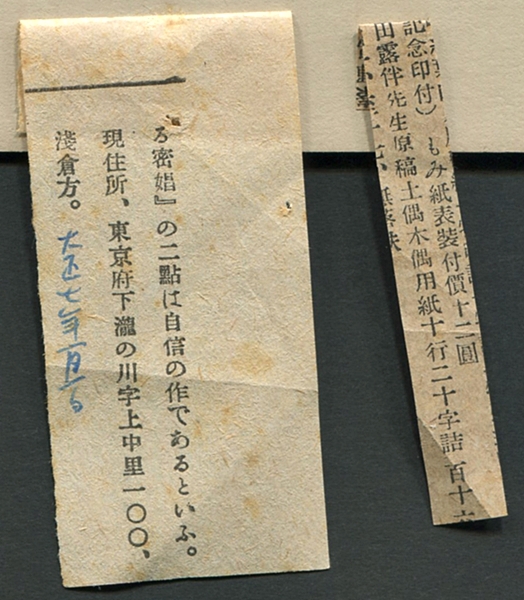 記念印付）もみ紙表裝付價十二圓
田露伴先生原稿土偶木偶用紙十行二十字詰 百十
る密娼』の二點は自信の作であるといふ。
現住所、東京府下瀧の川字上中里一〇〇、
淺倉方。大正七年一月一日